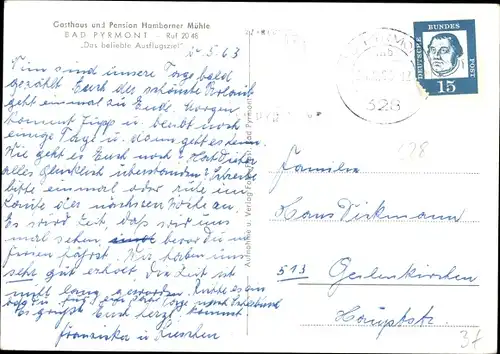 Gasthaus und Pension Hamborner Mühle
BAD PYRMONT - Ruf 2048
"Das beliebte Ausflugsziel"
5.63
Nun sind unsere Tage bald
gezählt. Auch der schönste Urlaub
geht einmal zu Ende. Morgen
kommt Jupp u. bleibt noch
einige Tage u. dann geht es heim.
Wie geht es Euch noch? Hat Dieter
alles glücklich überstanden? Schreibe
bitte einmal oder rufe im
Laufe der nächsten Woche an.
Es wird Zeit, daß wir uns
mal sehen bevor Du in
fährst. Wir haben uns
sehr gut erholt. Die Zeit ist
nicht lang geworden.
Es grüßt Euch herzl.
Franziska u. Lieschen
Aufnahme u. Verlag Bad Pyrmont
328
DEUTSCHE BUNDESPOST
15
Familie
Hans Dickmann
513 Geilenkirchen
Hauptstr